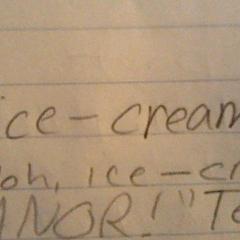 ice-cream
oh, ice-cr
ANOR!"Te